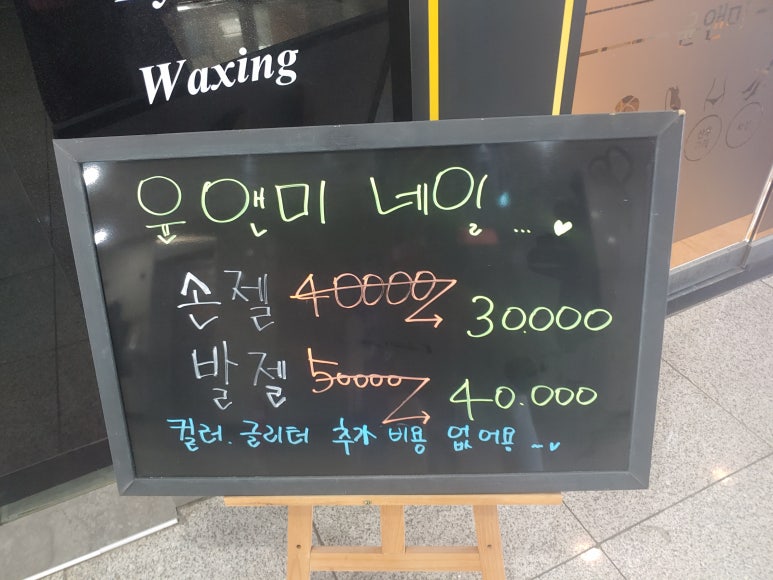 Waxing
윤앤미
윤앤미 네일... ♥
손젤 40000 → 30.000
발젤 50000 → 40.000
컬러. 글리터 추가 비용 없어용 ~♥